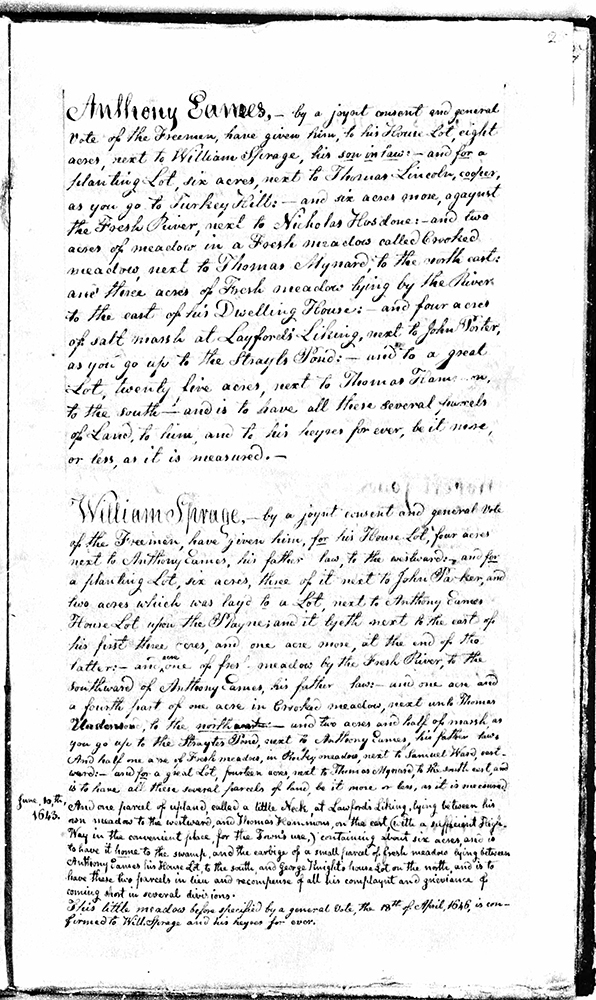 2
Anthony Eames, – by a joynt consent and general
Vote of the Freemen, have given him, to his House Lot, eight
acres, next to William Sprage, his son in law: – and for a
planting Lot, six acres, next to Thomas Lincoln, cooper,
as you go to Turkey Hill: – and six acres more, agaynst
the Fresh River, next to Nicholas Hosdone: – and two
acres of meadow in a Fresh meadow called Crooked
meadow, next to Thomas Mynard to the north east:
and three acres of Fresh meadow lying by the River
to the east of his Dwelling House: – and four acres
of salt marsh at Layford's Liking, next to John Porter,
as you go up to the Strayts Pond: – and to a great
Lot, twenty five acres, next to Thomas
to the south – and is to have all these several parcels
of Land, to him, and to his heyres for ever, be it more,
or less, as it is measured. –
William Sprage, – by a joynt consent and general Vote
of the Freemen, have given him, for his House Lot, four acres
next to Anthony Eames, his father law, to the westward: – and for
a planting Lot, six acres, three of it next to John Parker, and
two acres which was layd to a Lot, next to Anthony Eames
House Lot upon the Playne; and it lyeth next to the east of
his first three acres, and one acre more, at the end of the
latter: – and one of fresh meadow by the Fresh River, to the
southward of Anthony Eames, his father law: – and one acre and
a fourth part of one acre in Crooked meadow, next unto Thomas
to the – and two acres and half of marsh, as
you go up to the Strayts Pond, next to Anthony Eames, his father law
And half one acre of Fresh meadow, in Rocky meadow, next to Samuel Ward, east-
ward: – and for a great Lot, fourteen acres, next to Thomas Mynard, to the south east, and
is to have all these several parcels of land, be it more or less, as it is measured
June, 10th, 1643.
And one parcel of upland, called a little Neck, at Lawford's Liking, lying between his
own meadow to the westward, and Thomas Hammons, on the east (with a sufficient High-
Way in the convenient place, for the Town's use,) containing about six acres, and is
to have it home to the swamp, and the earbige of a small parcel of fresh meadow lying between
Anthony Eames his House Lot, to the south, and George Knight's house Lot on the north, and is to
have these two parcels in lieu and recompense of all his complaynt and grievance of
coming short in several divisions.
This little meadow before specified by a general Vote, the 18th of April, 1646, is con-
firmed to Will: Sprage and his heyres for ever.